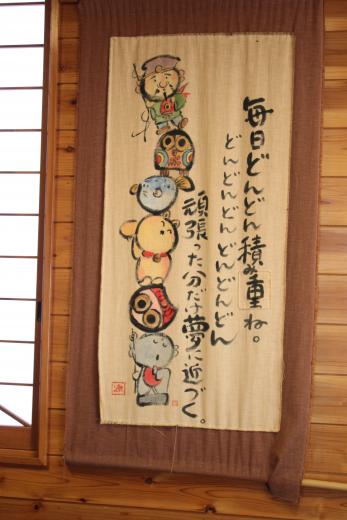 毎日どんどん積み重ね。
どんどんどんどんどんどん
頑張った分だけ夢に近づく。